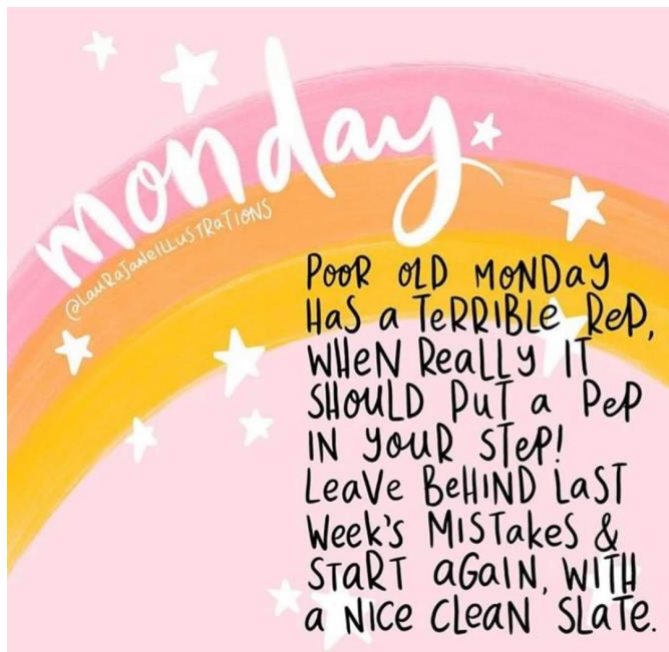 monday
@LauRaJaNeILLuSTRaTIoNS
PooR oLD MoNDay
HaS a TeRRIBLe ReP,
WHeN ReaLLy IT
SHouLD PuT a PeP
IN youR STeP!
LeaVe BeHIND LaST
Week's MISTakeS &
STaRT aGaIN, WITH
a NIce cLeaN SLaTe.